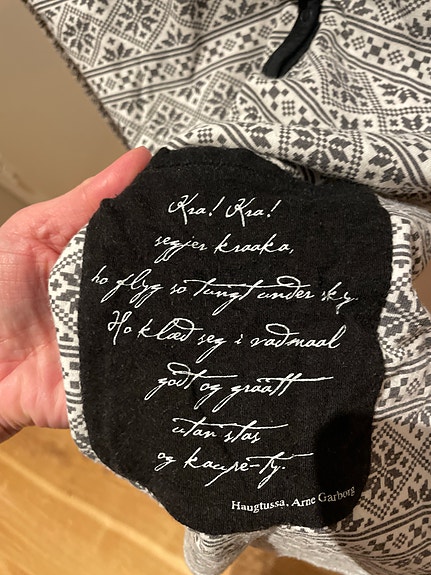 Kra! Kra!
segjer kraaka,
ho flyg so tungt under sky.
Ho klæd seg i vadmaal
godt og graatt
utan stas
og kaupe-ty.
Haugtussa. Arne Garborg